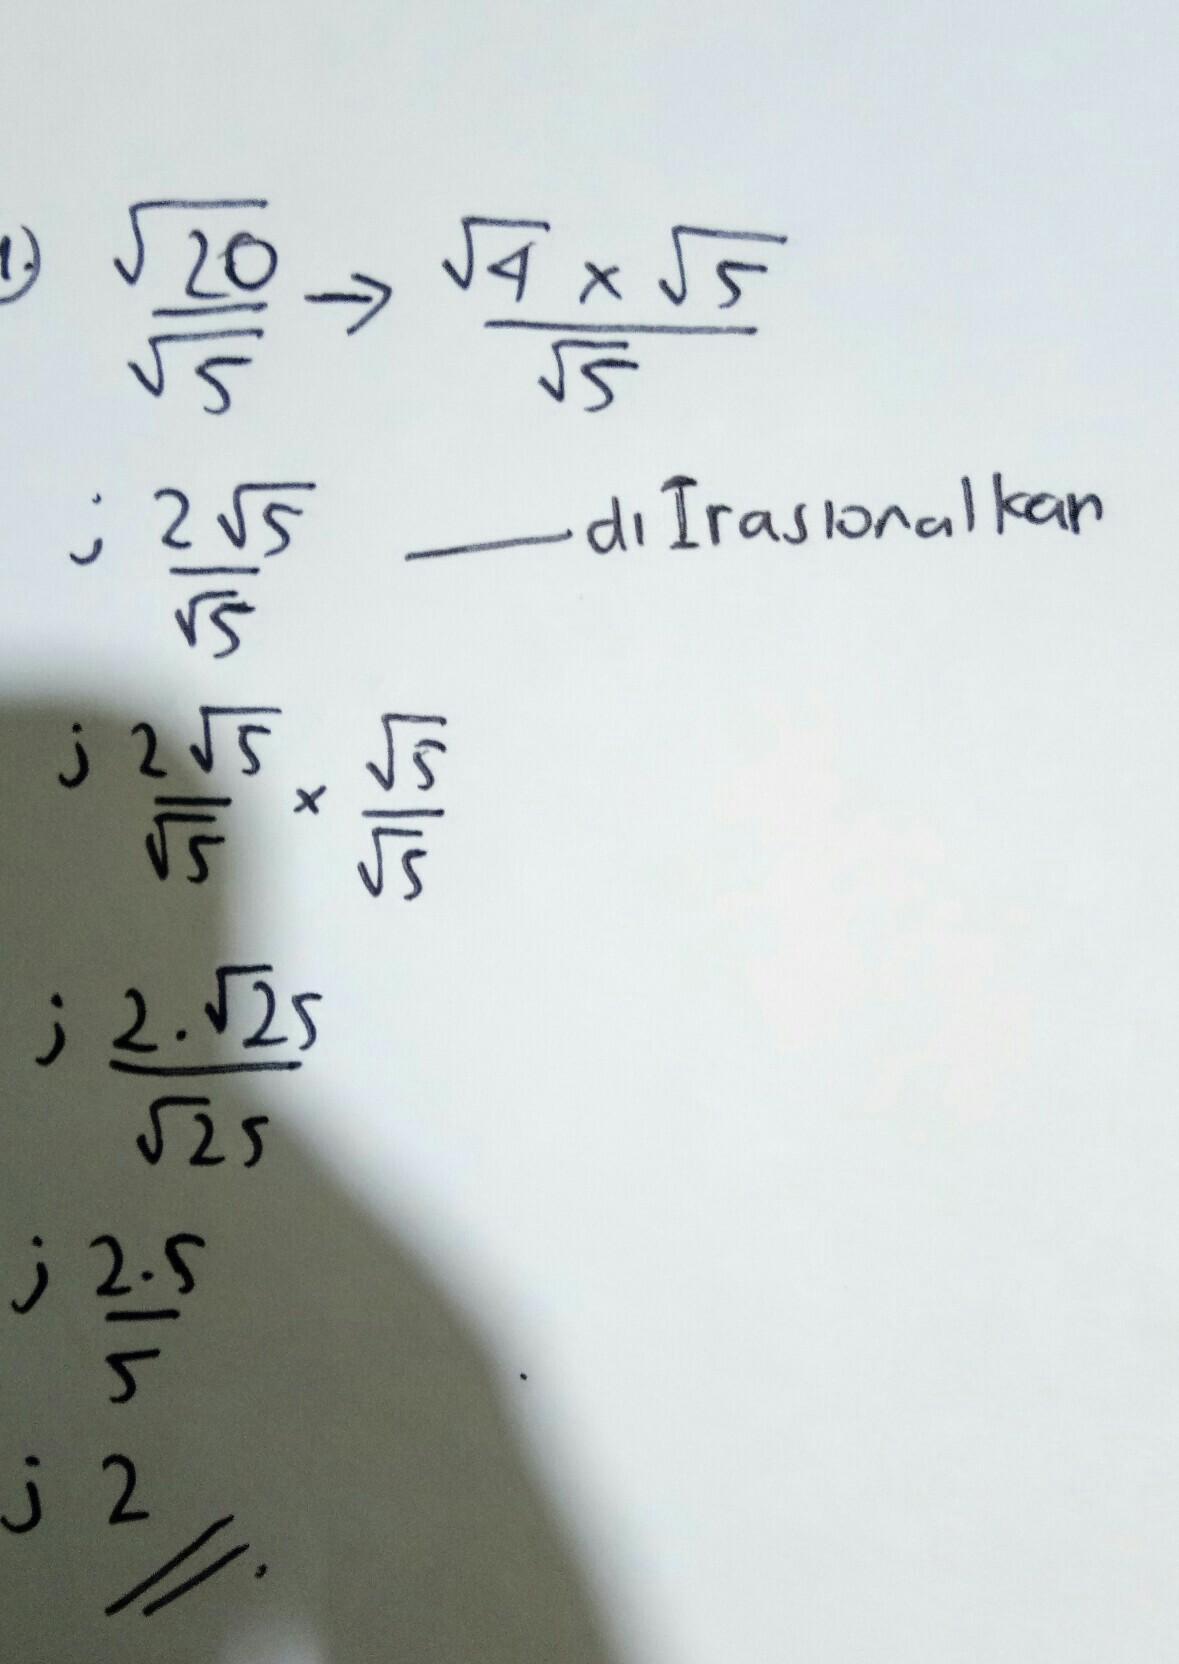 1.) √20/√5 → √4 x √5/√5
; 2√5/√5 — diIrasionalkan
; 2√5/√5 x √5/√5
; 2.√25/√25
; 2.5/5
; 2 //.